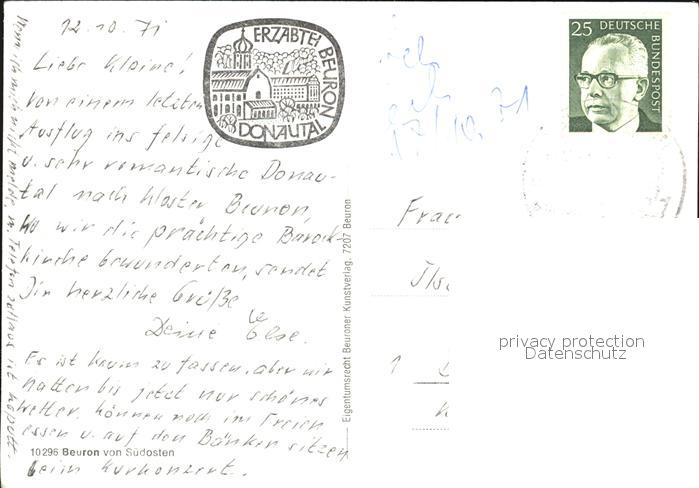 12.10.71
Liebe Kleine!
Von einem letzten
Ausflug ins felsige
u. sehr romantische Donau-
tal nach Kloster Beuron,
wo wir die prächtige Barock-
kirche bewunderten, sendet
Dir herzliche Grüße
Deine Else.
Es ist kaum zu fassen, aber wir
hatten bis jetzt nur schönes
Wetter. können noch im Freien
essen u. auf den Bänken sitzen
beim Kurkonzert.
Wenn ich mich nicht melde, m. Telefon ist kaputt.
10296 Beuron von Südosten
ERZABTEI BEURON
DONAUTAL
Eigentumsrecht Beuroner Kunstverlag, 7207 Beuron
17/10.71
25 DEUTSCHE
BUNDESPOST
Frau
Ilse
1
privacy protection
Datenschutz